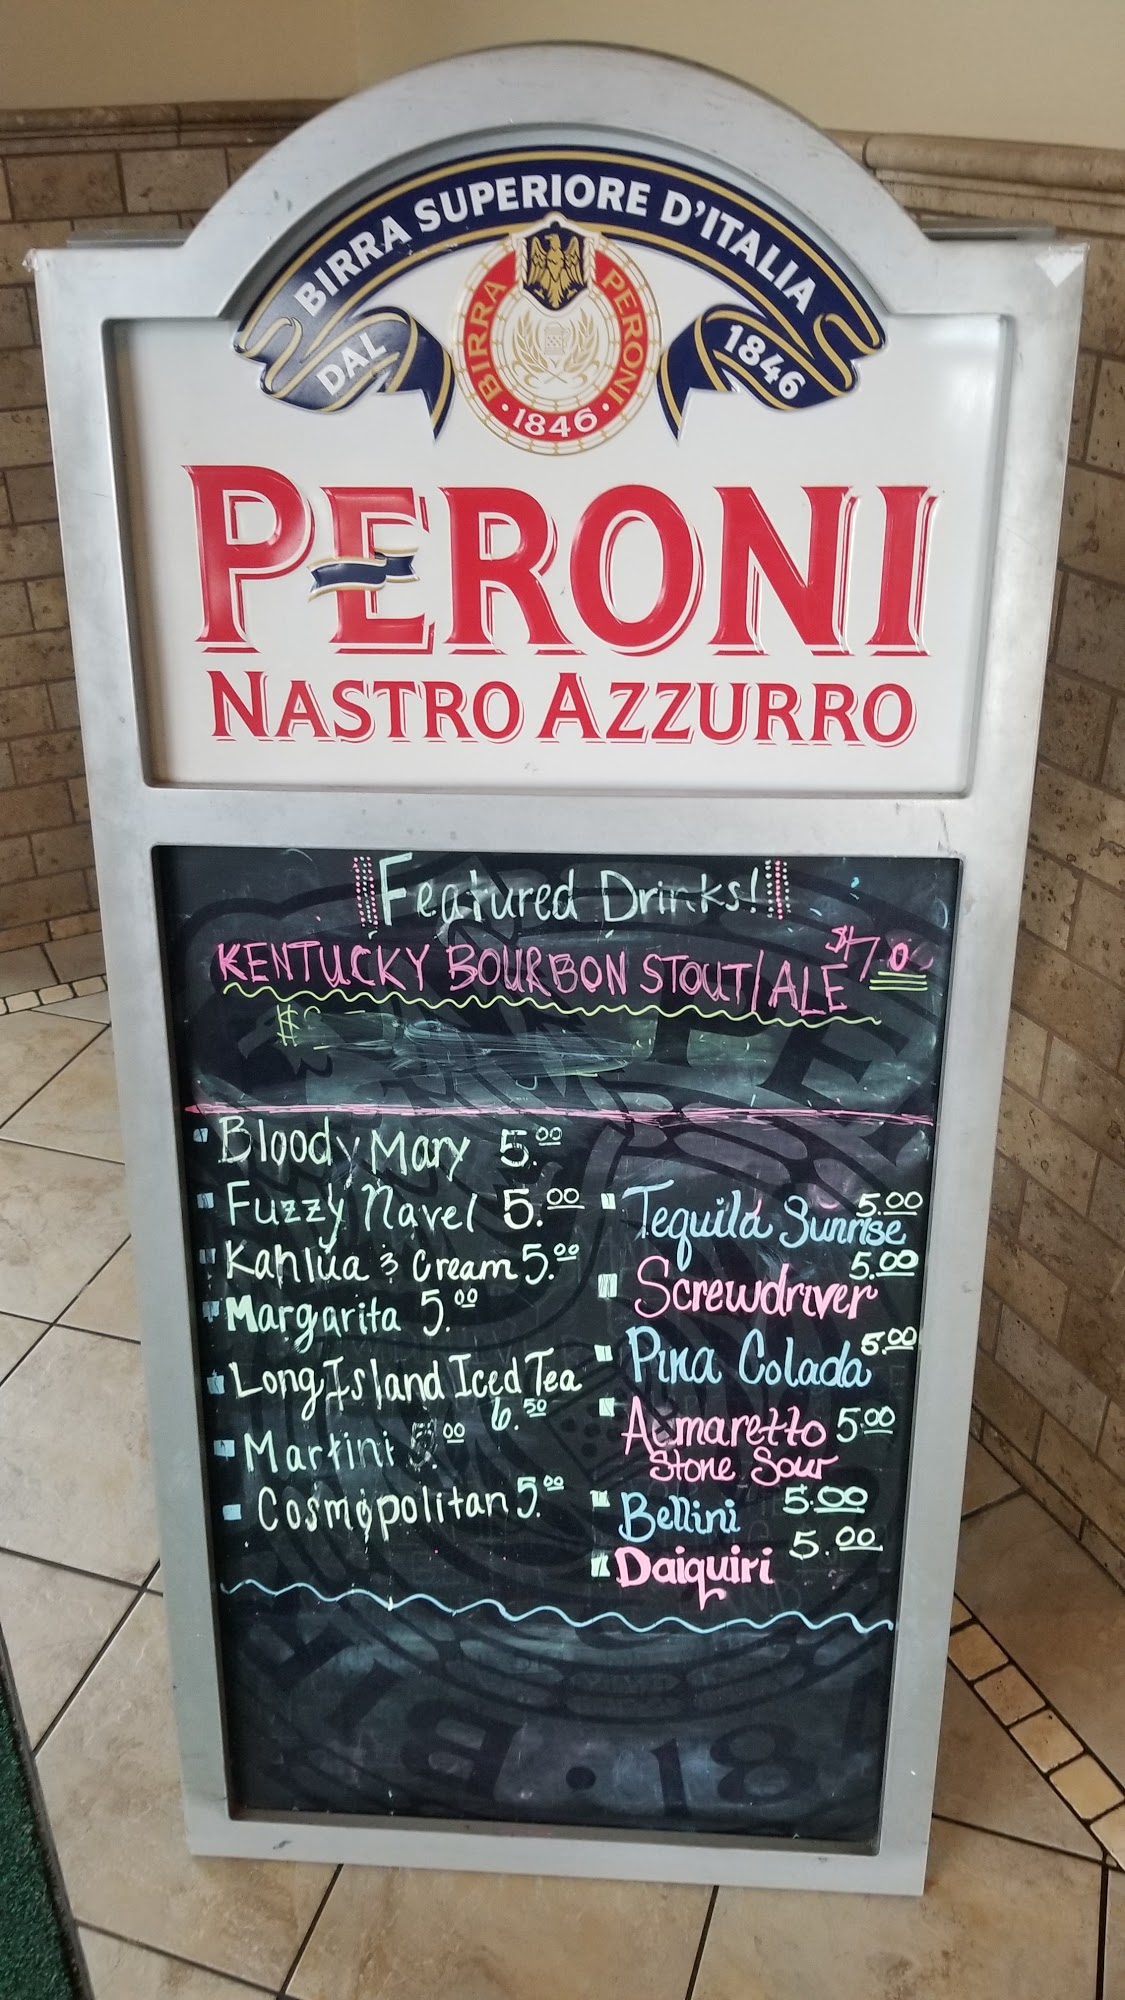 BIRRA SUPERIORE D'ITALIA
DAL 1846
BIRRA PERONI
· 1846 ·
PERONI
NASTRO AZZURRO
Featured Drinks!
KENTUCKY BOURBON STOUT/ALE $7.0
Bloody Mary 5.00
Fuzzy Navel 5.00
Kahlua & Cream 5.00
Margarita 5.00
Long Island Iced Tea
6.50
Martini 5.00
Cosmopolitan 5.00
Tequila Sunrise 5.00
Screwdriver 5.00
Pina Colada 5.00
Aamaretto 5.00
Stone Sour
Bellini 5.00
Daiquiri 5.00